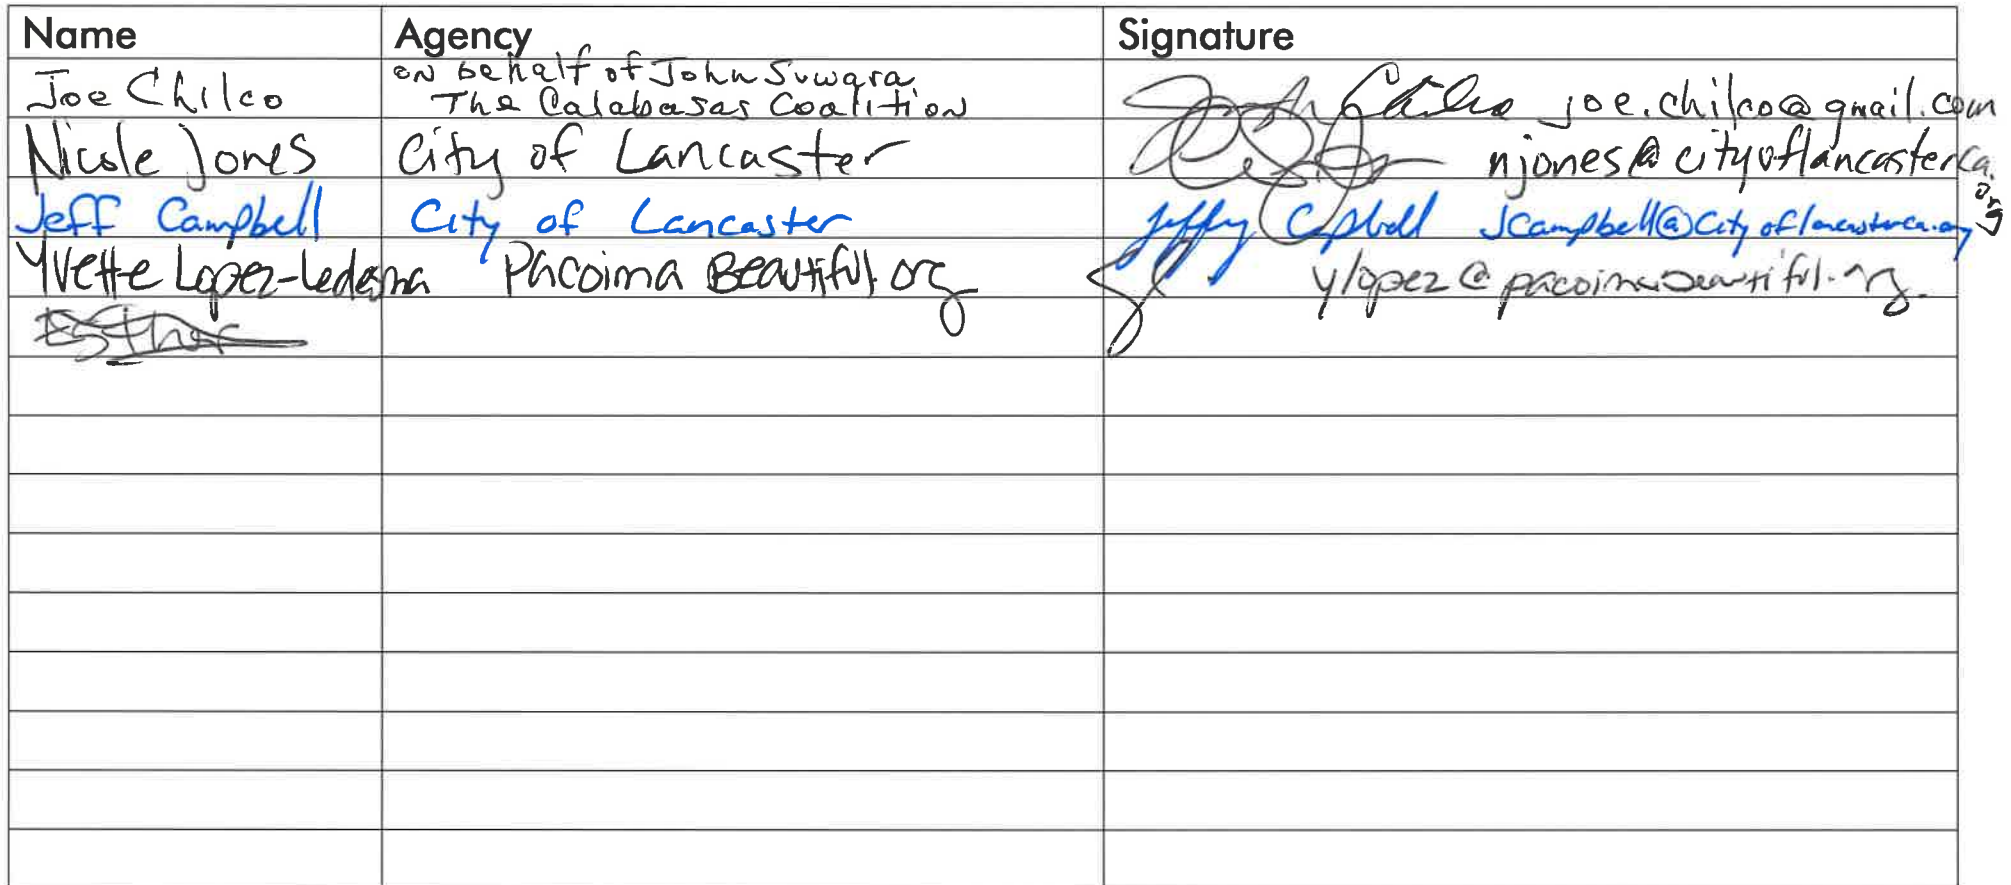 Name Agency Signature
Joe Chilco on behalf of John Suwara
The Calabasas Coalition joe.chilco@gmail.com
Nicole Jones City of Lancaster njones@cityoflancasterca.
org
Jeff Campbell City of Lancaster Jeffry Campbell JCampbell@cityoflancasterca.org
Yvette Lopez-Ledesma Pacoima Beautiful.org ylopez@pacoimabeautiful.org
Esther